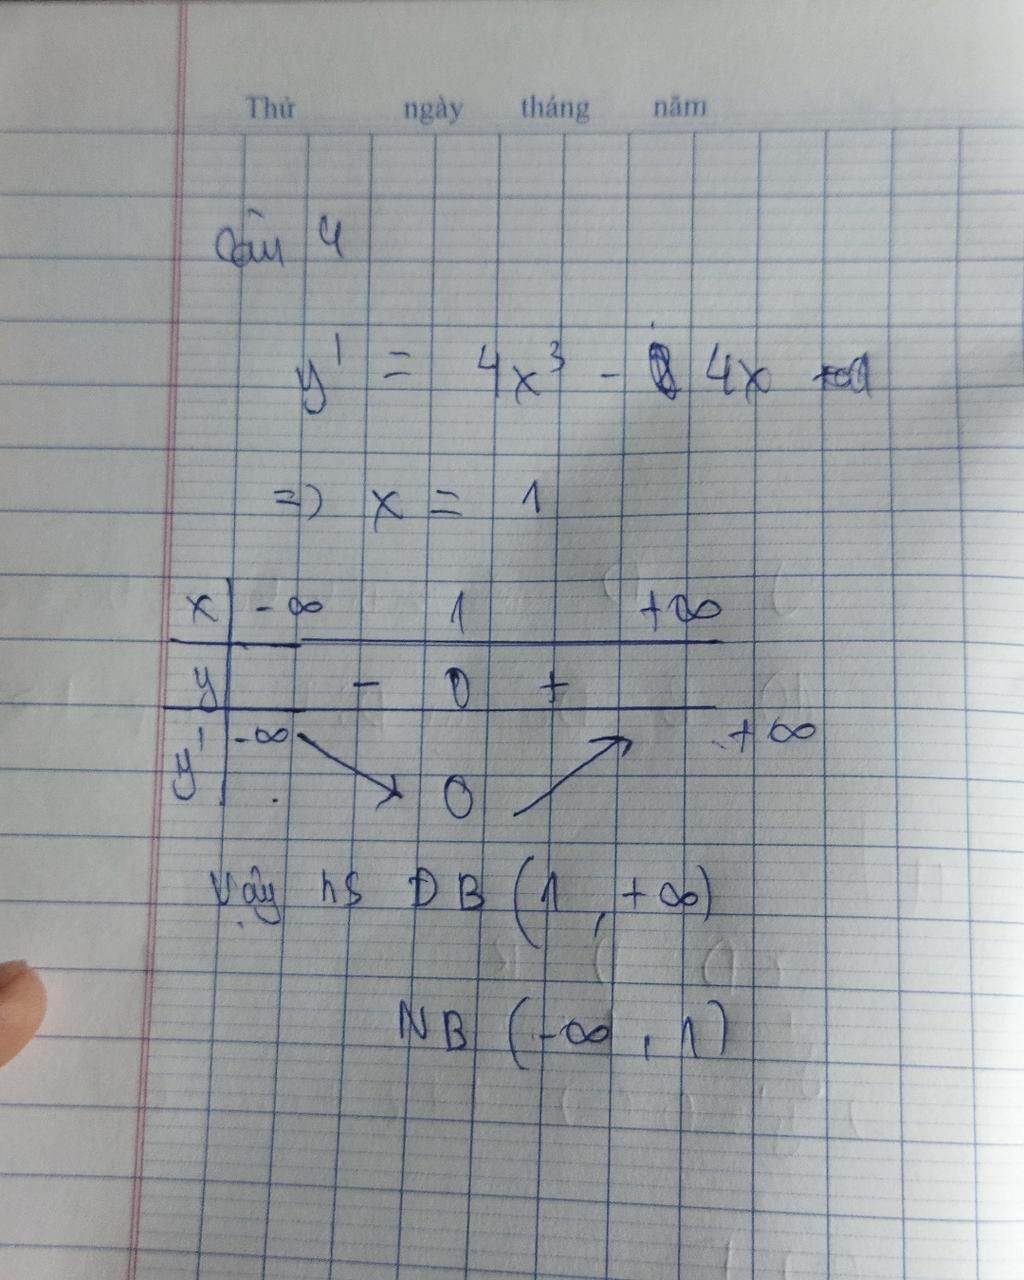 Thứ ngày tháng năm
Câu 4
y' = 4x³ - 4x
=> x = 1
x -∞ 1 +∞
y - 0 +
y' -∞ 0 +∞
Vậy hs ĐB (1, +∞)
NB (-∞, 1)